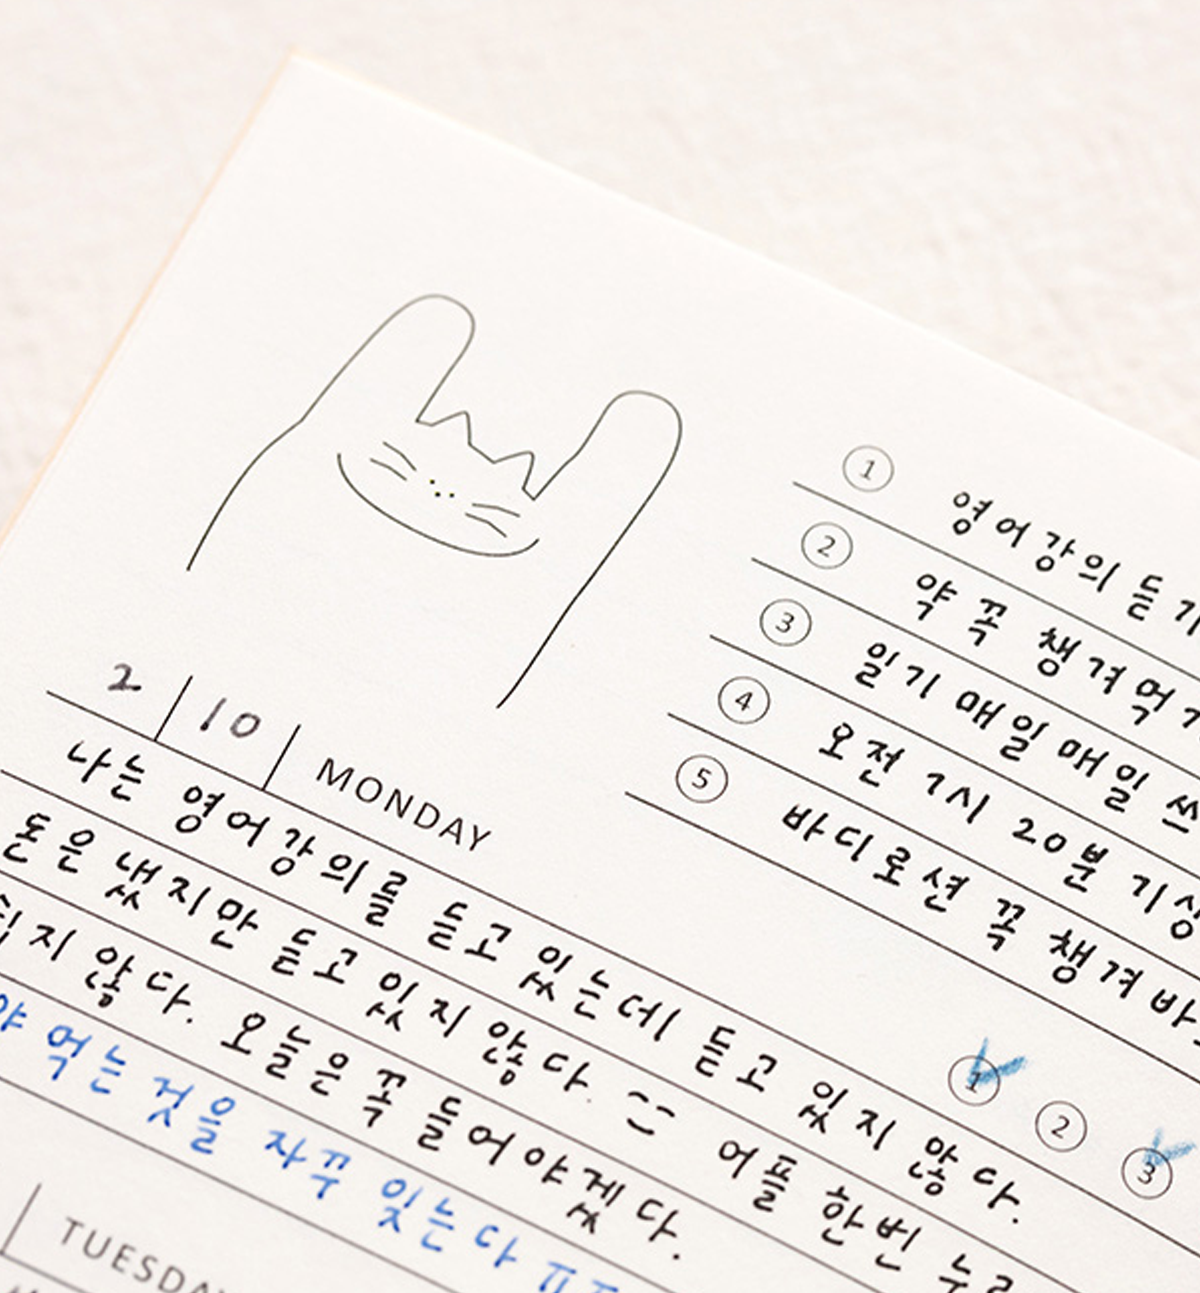 ① 영어강의 듣기
② 약 꼭 챙겨먹기
③ 일기 매일매일 쓰
④ 오전 7시 20분 기상
⑤ 바디로션 꼭 챙겨 바
2 10 MONDAY
① ② ③
나는 영어강의를 듣고 있는데 듣고 있지 않다.
돈은 냈지만 듣고 있지 않다. 어플 한번
쉽지 않다. 오늘은 꼭 들어야겠다.
먹는 것을 자꾸 잊는다 ㅠㅠ
TUESDAY